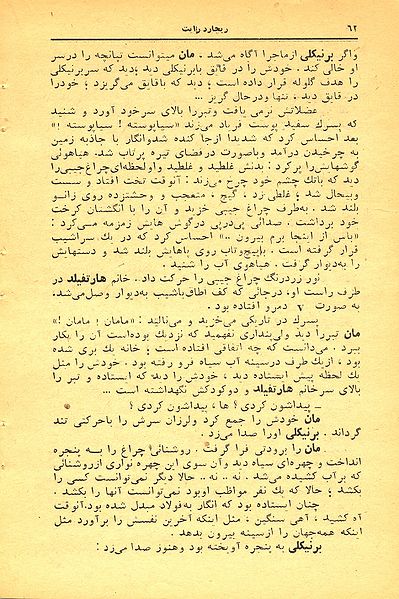 ۶۲ ریچارد رایت
واگر برنیکلی ازماجرا آگاه میشد . مان میتوانست تپانچه را درسر
او خالی کند . خودش را در قایق بابرنیکلی دید ؛ دید که سربرنیکلی
را هدف گلوله قرار داده است ؛ دید که باقایق میگریزد ؛ خودرا
در قایق دید . تنها ودرحال گریز ...
عضلاتش نرمی یافت وتبررا بالای سرخود آورد و شنید
که پسرك سفید پوست فریاد میزند «سیاپوسته ! سیاپوسته !»
بعد احساس کرد که شدیدا ازجا کنده شدوانگار با جاذبه زمین
به چرخیدن درآمد وباصورت درفضای تیره پرتاب شد. هیاهوئی
گوشهایش را پر کرد : بدنش غلطید و غلطید واولحظه‌ای چراغ جیبی را
دید که باتك چشم خود چرخ میزند : آنوقت تخت افتاد و سست
وبیحال شد ، غلطی زد ، گیج ، متعجب و وحشتزده روی زانو
بلند شد . به‌طرف چراغ جیبی خزید و آن را با انگشتان کرخت
خود برداشت . صدائی پی‌درپی درگوش هایش زمزمه میکرد :
«باس از اینجا برم بیرون ..» احساس کرد که در یك سراشیب
قرار گرفته است . باپیچ‌وتاب روی پاهایش بلند شد و دستهایش
را به‌دیوار گرفت . هیاهوی آب را شنید .
نور زردرنگ چراغ جیبی را حرکت داد . خانم هارتفیلد در
طرف راست او، درجائی که کف اطاق باشیب به‌دیوار وصل میشد،
به صورت ۷ دمرو افتاده بود .
پسرك در تاریکی میخزید و مینالید : «مامان ! مامان !»
مان تبررا دید ولی‌پنداری نفهمید که نزدیك بوده‌است آن را بکار
ببرد . میدانست که چه اتفاقی افتاده است ؛ خانه یك بری شده
بود ، ازیك طرف درسینه آب سیاه فرو رفته بود . خودش را مثل
یك لحظه پیش ایستاده دید ، خودش را دید که ایستاده و تبر را
بالای سرخانم هارتفیلد و دوکودکش نگهداشته است ...
ـ پیداشون کردی ؟ ها ، پیداشون کردی ؟
مان خودش را جمع کرد ولرزان سرش را باحرکتی تند
گرداند . برنیکلی اورا صدا میزد .
مان را برودتی فرا گرفت . روشنائی چراغ را به پنجره
انداخت و چهره‌ای سیاه دید وآن سوی این چهره نواری ازروشنائی
که برآب کشیده میشد . نه .. نه .. حالا دیگر نمی‌توانست کسی را
بکشد ؛ حالا که یك نفر مواظب اوبود نمیتوانست آنها را بکشد .
چنان ایستاده بود که انگار به‌فولاد مبدل شده بود. آنوقت
آه کشید ، آهی سنگین ، مثل اینکه آخرین نفسش را برآورد مثل
اینکه همه‌جهان را ازسینه بیرون بدهد .
برنیکلی به پنجره آویخته بود وهنوز صدا میزد :